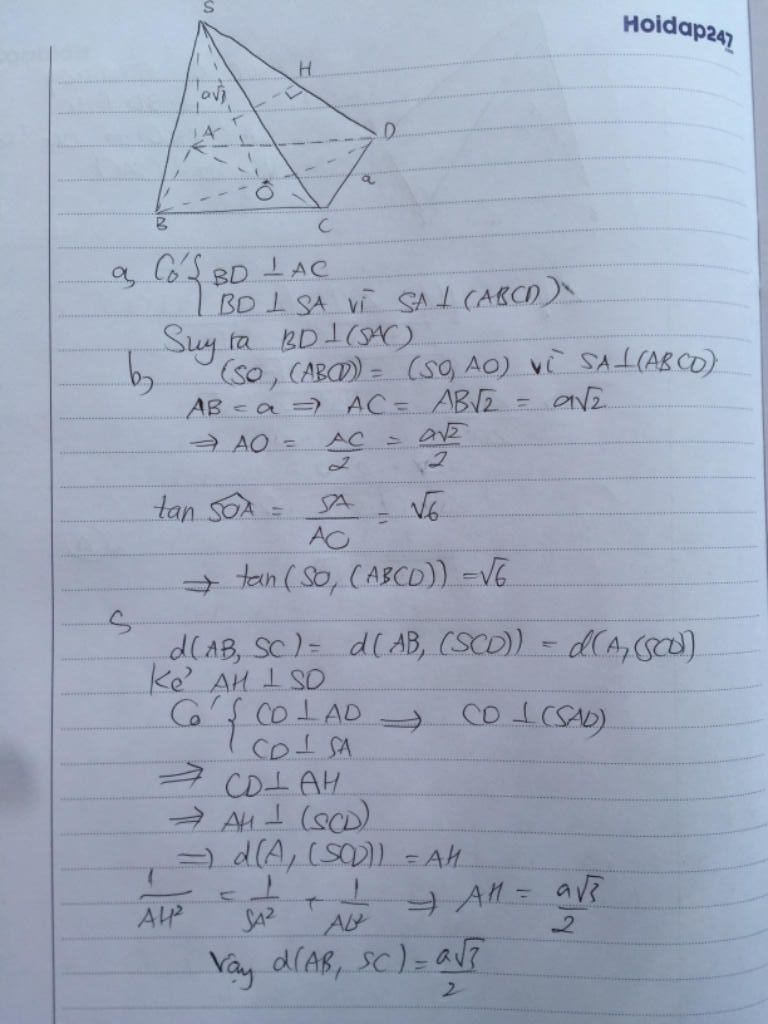 Hoidap247
S
H
a√3
A
D
a
O
B
C
a, Có { BD ⊥ AC
BD ⊥ SA vì SA ⊥ (ABCD)
Suy ra BD ⊥ (SAC)
b, (SO, (ABCD)) = (SO, AO) vì SA ⊥ (ABCD)
AB = a ⇒ AC = AB√2 = a√2
⇒ AO = AC/2 = a√2/2
tan SOA = SA/AO = √6
⇒ tan(SO, (ABCD)) = √6
d(AB, SC) = d(AB, (SCD)) = d(A, (SCD))
Kẻ AH ⊥ SD
Có { CD ⊥ AD ⇒ CD ⊥ (SAD)
CD ⊥ SA
⇒ CD ⊥ AH
⇒ AH ⊥ (SCD)
⇒ d(A, (SCD)) = AH
1/AH² = 1/SA² + 1/AD² ⇒ AH = a√3/2
Vậy d(AB, SC) = a√3/2